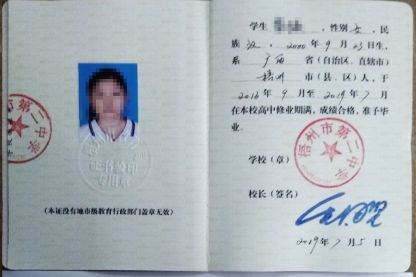 (本证没有地市级教育行政部门盖章无效)
学生 ,性别 女 ,民
族 汉 , 2000 年 9 月 23 日生,
系 广西 省(自治区、直辖市)
梧州 市(县、区)人,于
2016 年 9 月至 2019 年 7 月
在本校高中修业期满,成绩合格,准予毕
业。
梧州市第二中学
学校(章)
校长(签名)
2019 年 7 月 5 日